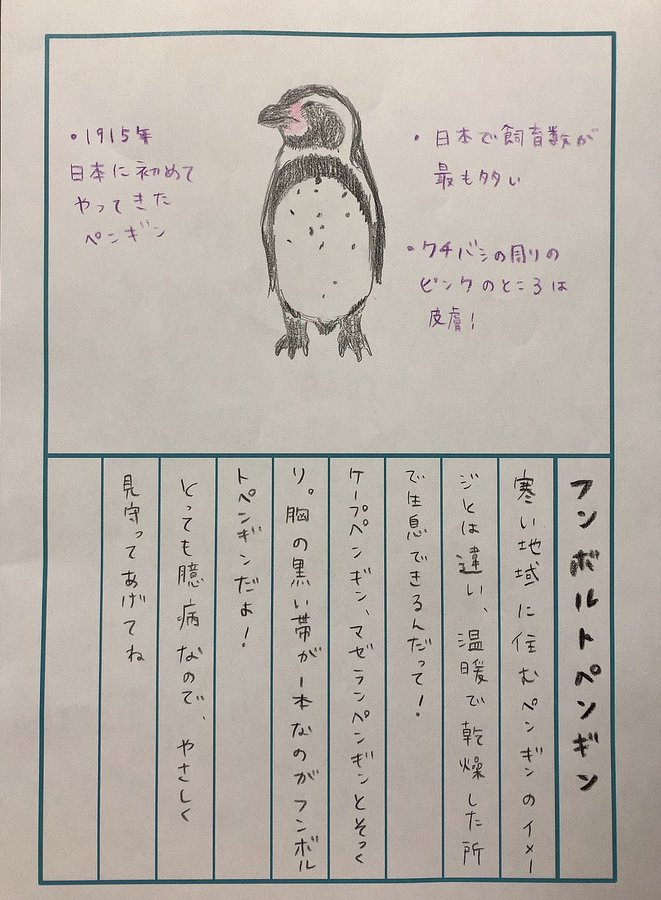 ・1915年
日本に初めて
やってきた
ペンギン
・日本で飼育数が
最も多い
・クチバシの周りの
ピンクのところは
皮膚!
フンボルトペンギン
寒い地域に住むペンギンのイメー
ジとは違い、温暖で乾燥した所
で生息できるんだって!
ケープペンギン、マゼランペンギンとそっく
り。胸の黒い帯が1本なのがフンボル
トペンギンだよ!
とっても臆病なので、やさしく
見守ってあげてね